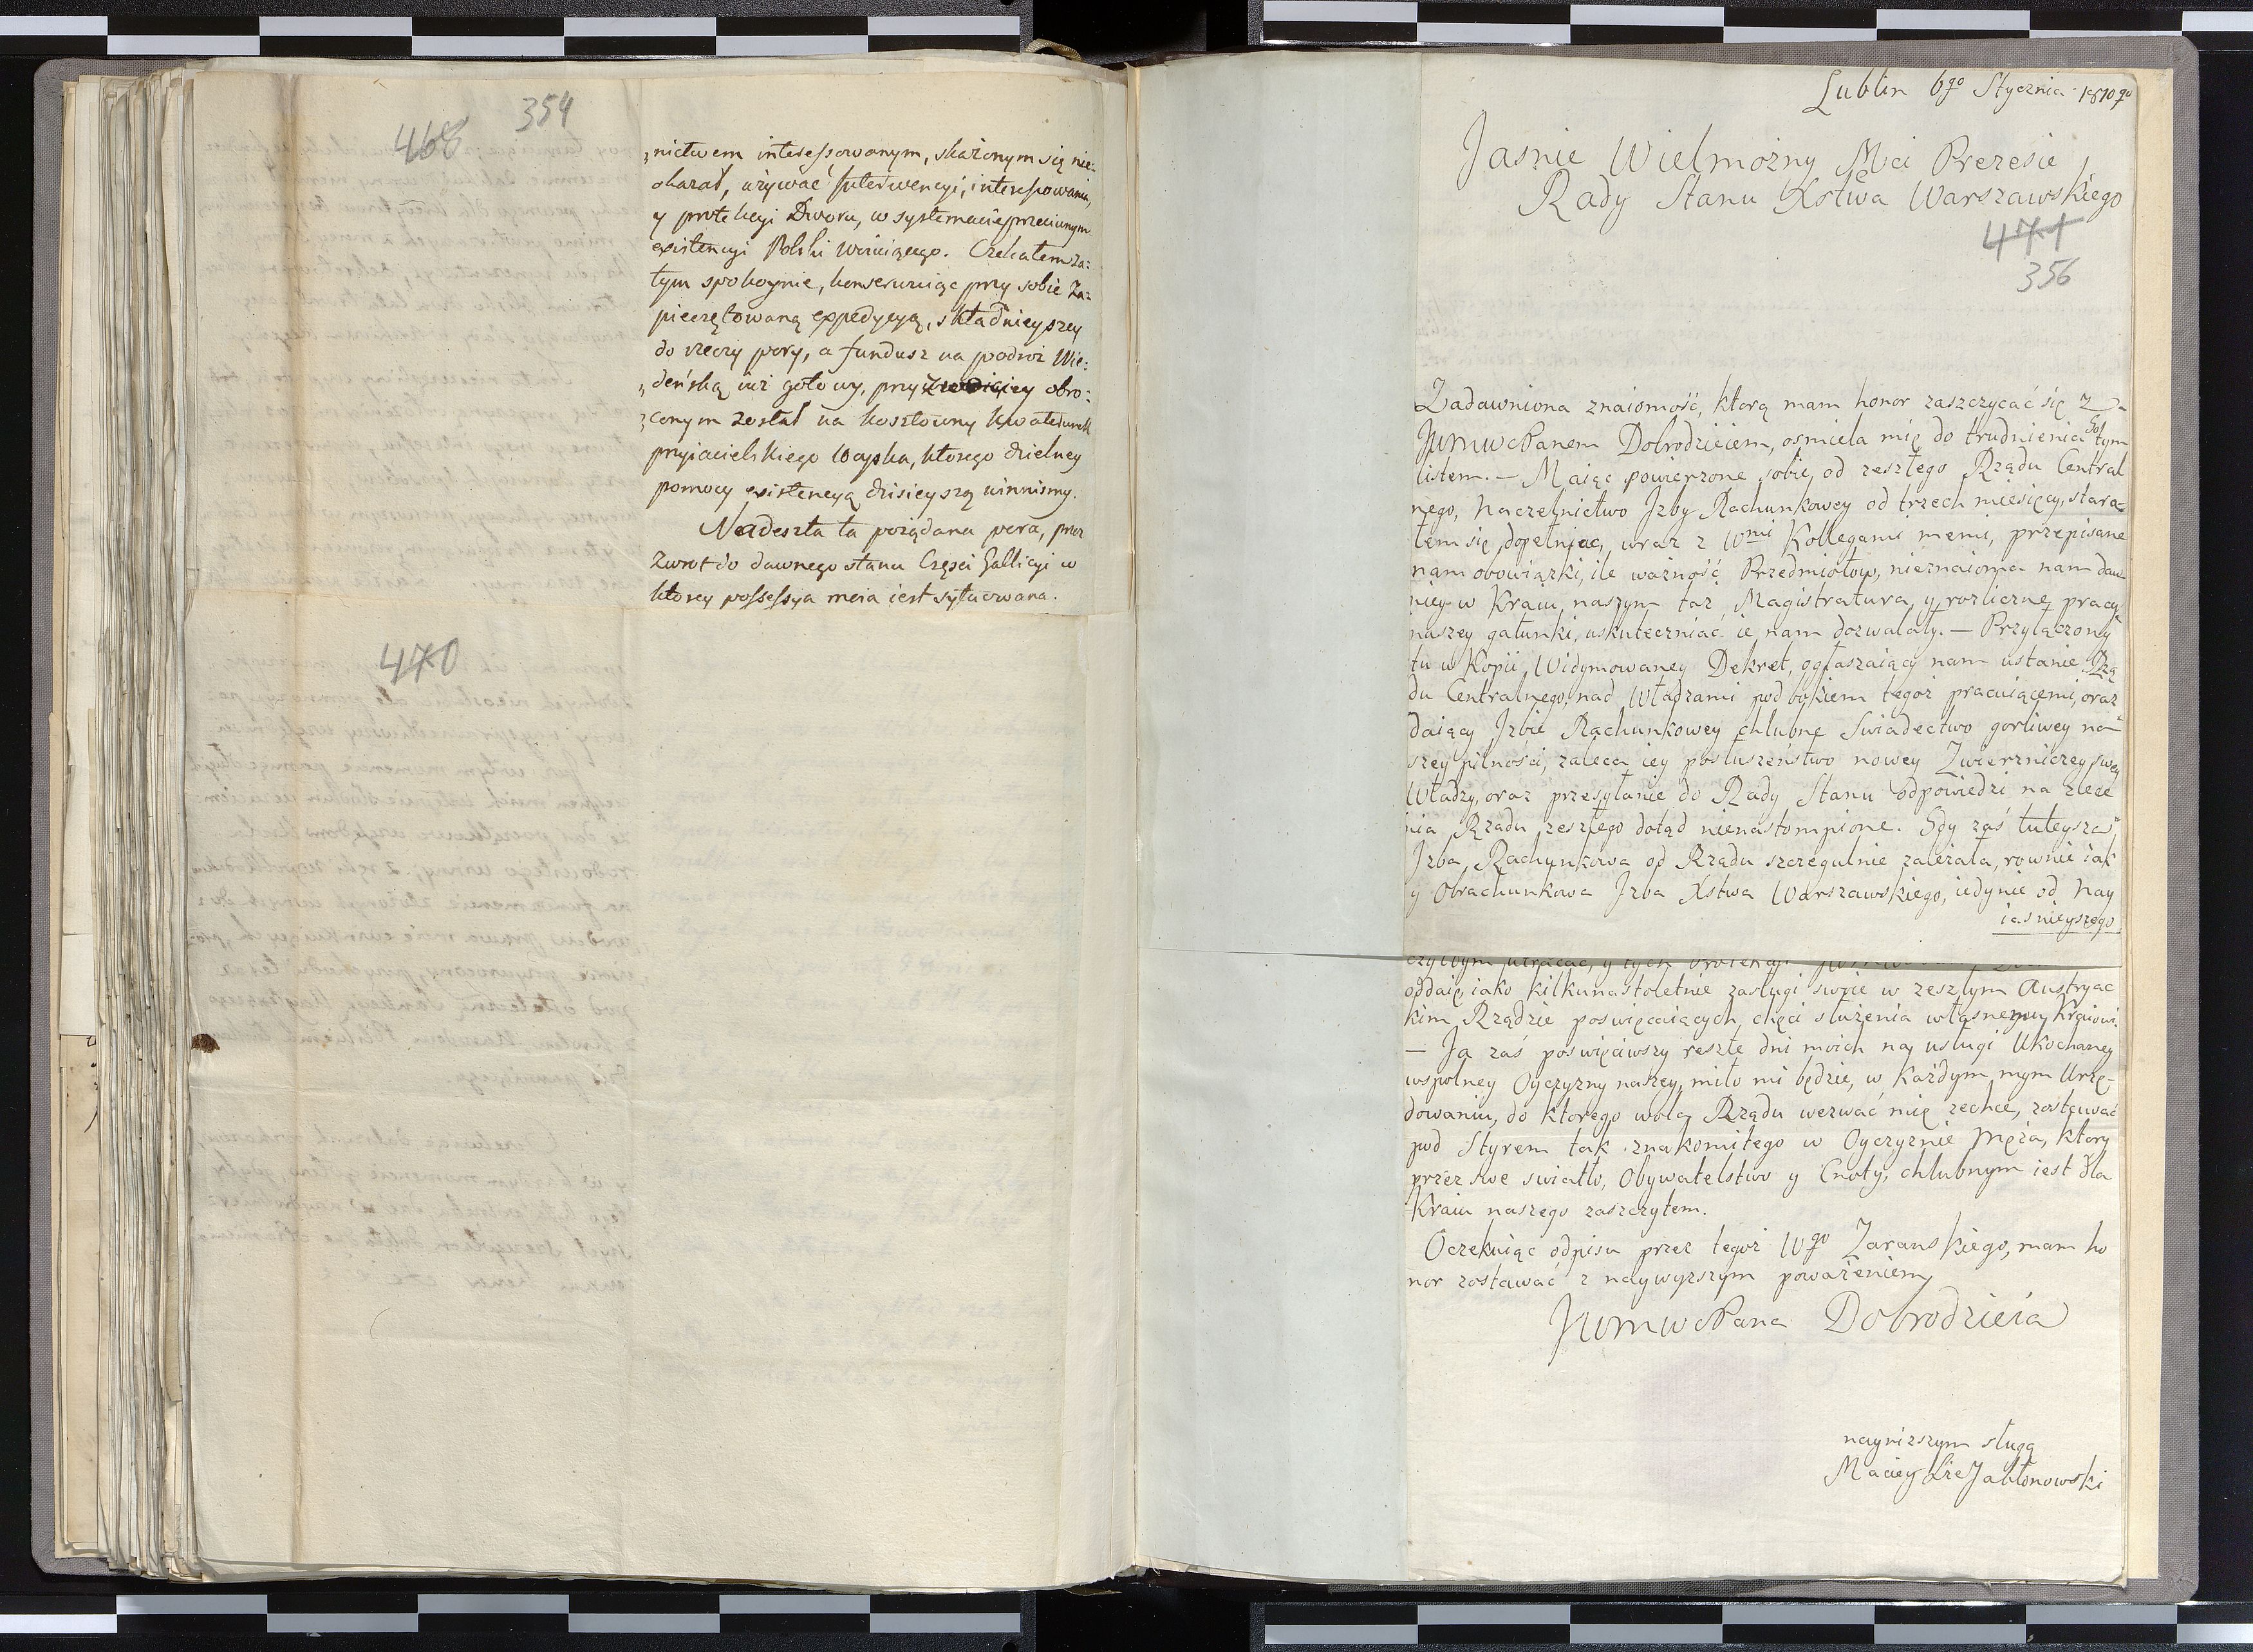 354
468
nictwem interessowanym, skażonym się nie:
okazał, używać Interwencyi, interessowania,
y protekcyi Dworu, w systemacie przeciwnym
existencyi Polski Czekałem za:
tym spokoynie, konserwuiąc przy sobie za:
pieczętowaną expedycyą, składnieyszey
do rzeczy pory, a fundusz na podroż Wie:
deńską iuż gotowy, przy obro:
conym został na kosztowny kwaterunek
przyiacielskiego Woyska, którego dzielney
pomocy existencyą dzisieyszą winnismy.
Nadeszła ta pożądana pora, przez
zwrot do dawnego stanu Części Gallicyi w
ktorey possessya moia iest sytuowana.
470
Lublin 6go Stycznia 1810go
Jasnie Wielmożny Mci Prezesie
Rady Stanu Xstwa Warszawskiego
471
356
Zadawniona znaiomość, ktorą mam honor zaszczycać się z
JWmwcPanem Dobrodzieiem, osmiela mię do trudnienia Go tym
listem. — Maiąc powierzone sobie, od zeszłego Rządu Central
nego, Naczelnictwo Izby Rachunkowey od trzech miesięcy, stara=
łem się dopełniac, wraz z Wmi Kollegami memi, przepisane
nam obowiązki, ile ważność Przedmiotow, nieznaioma nam daw
niey w Kraiu naszym taż Magistratura, y rozliczne pracy
naszey gatunki, uskuteczniać ie nam dozwalały. — Przyłączony
tu w Kopii Widymowaney Dekret, ogłaszaiący nam ustanie Rzą
du Centralnego, nad Władzami pod bokiem tegoż pracuiącemi, oraz
daiący Izbie Rachunkowey chlubne Swiadectwo gorliwey na
szey pilności, zaleca iey posłuszeństwo nowey Zwierzniczey swey
Władzy, oraz przesyłanie do Rady Stanu odpowiedzi na zlece
nia Rządu zeszłego dotąd nienastompione. Gdy zaś tuteysza
Izba Rachunkowa od Rządu szczegulnie zależała, rownie iak
y Obrachunkowa Izba Xstwa Warszawskiego, iedynie od Nay
iasnieyszego
oddaię, iako kilkunastoletnie zasługi swoie w zeszłym Austryac
kim Rządzie poswięcaiących, chęci służenia własnemu Kraiowi.
— Ja zaś poswięciwszy resztę dni moich na usługi Ukochaney
wspolney Oyczyzny naszey, miło mi będzie, w każdym mym Urzę-
dowaniu, do ktorego wola Rządu wezwać mię zechce, zostawać
pod Styrem tak znakomitego w Oyczyznie Męża, ktory
przez swe swiatło, Obywatelstwo y Cnoty, chlubnym iest dla
Kraiu naszego zaszczytem.
Oczekuiąc odpisu przez tegoż Wgo Zaranskiego, mam ho
nor zostawać z naywyzszym poważeniem
JWmwcPana Dobrodzieia
nayniższym sługą
Maciey Jabłonowski